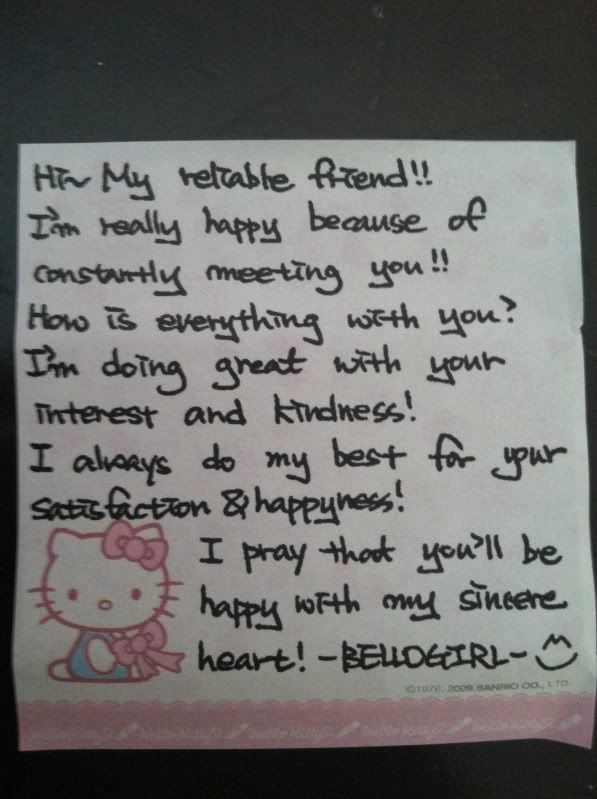 Hi~ My reliable friend!!
I'm really happy because of
constantly meeting you!!
How is everything with you?
I'm doing great with your
interest and kindness!
I always do my best for your
satisfaction & happyness!
I pray that you'll be
happy with my sincere
heart! -BELLOGIRL-
©1976, 2009 SANRIO CO., LTD.